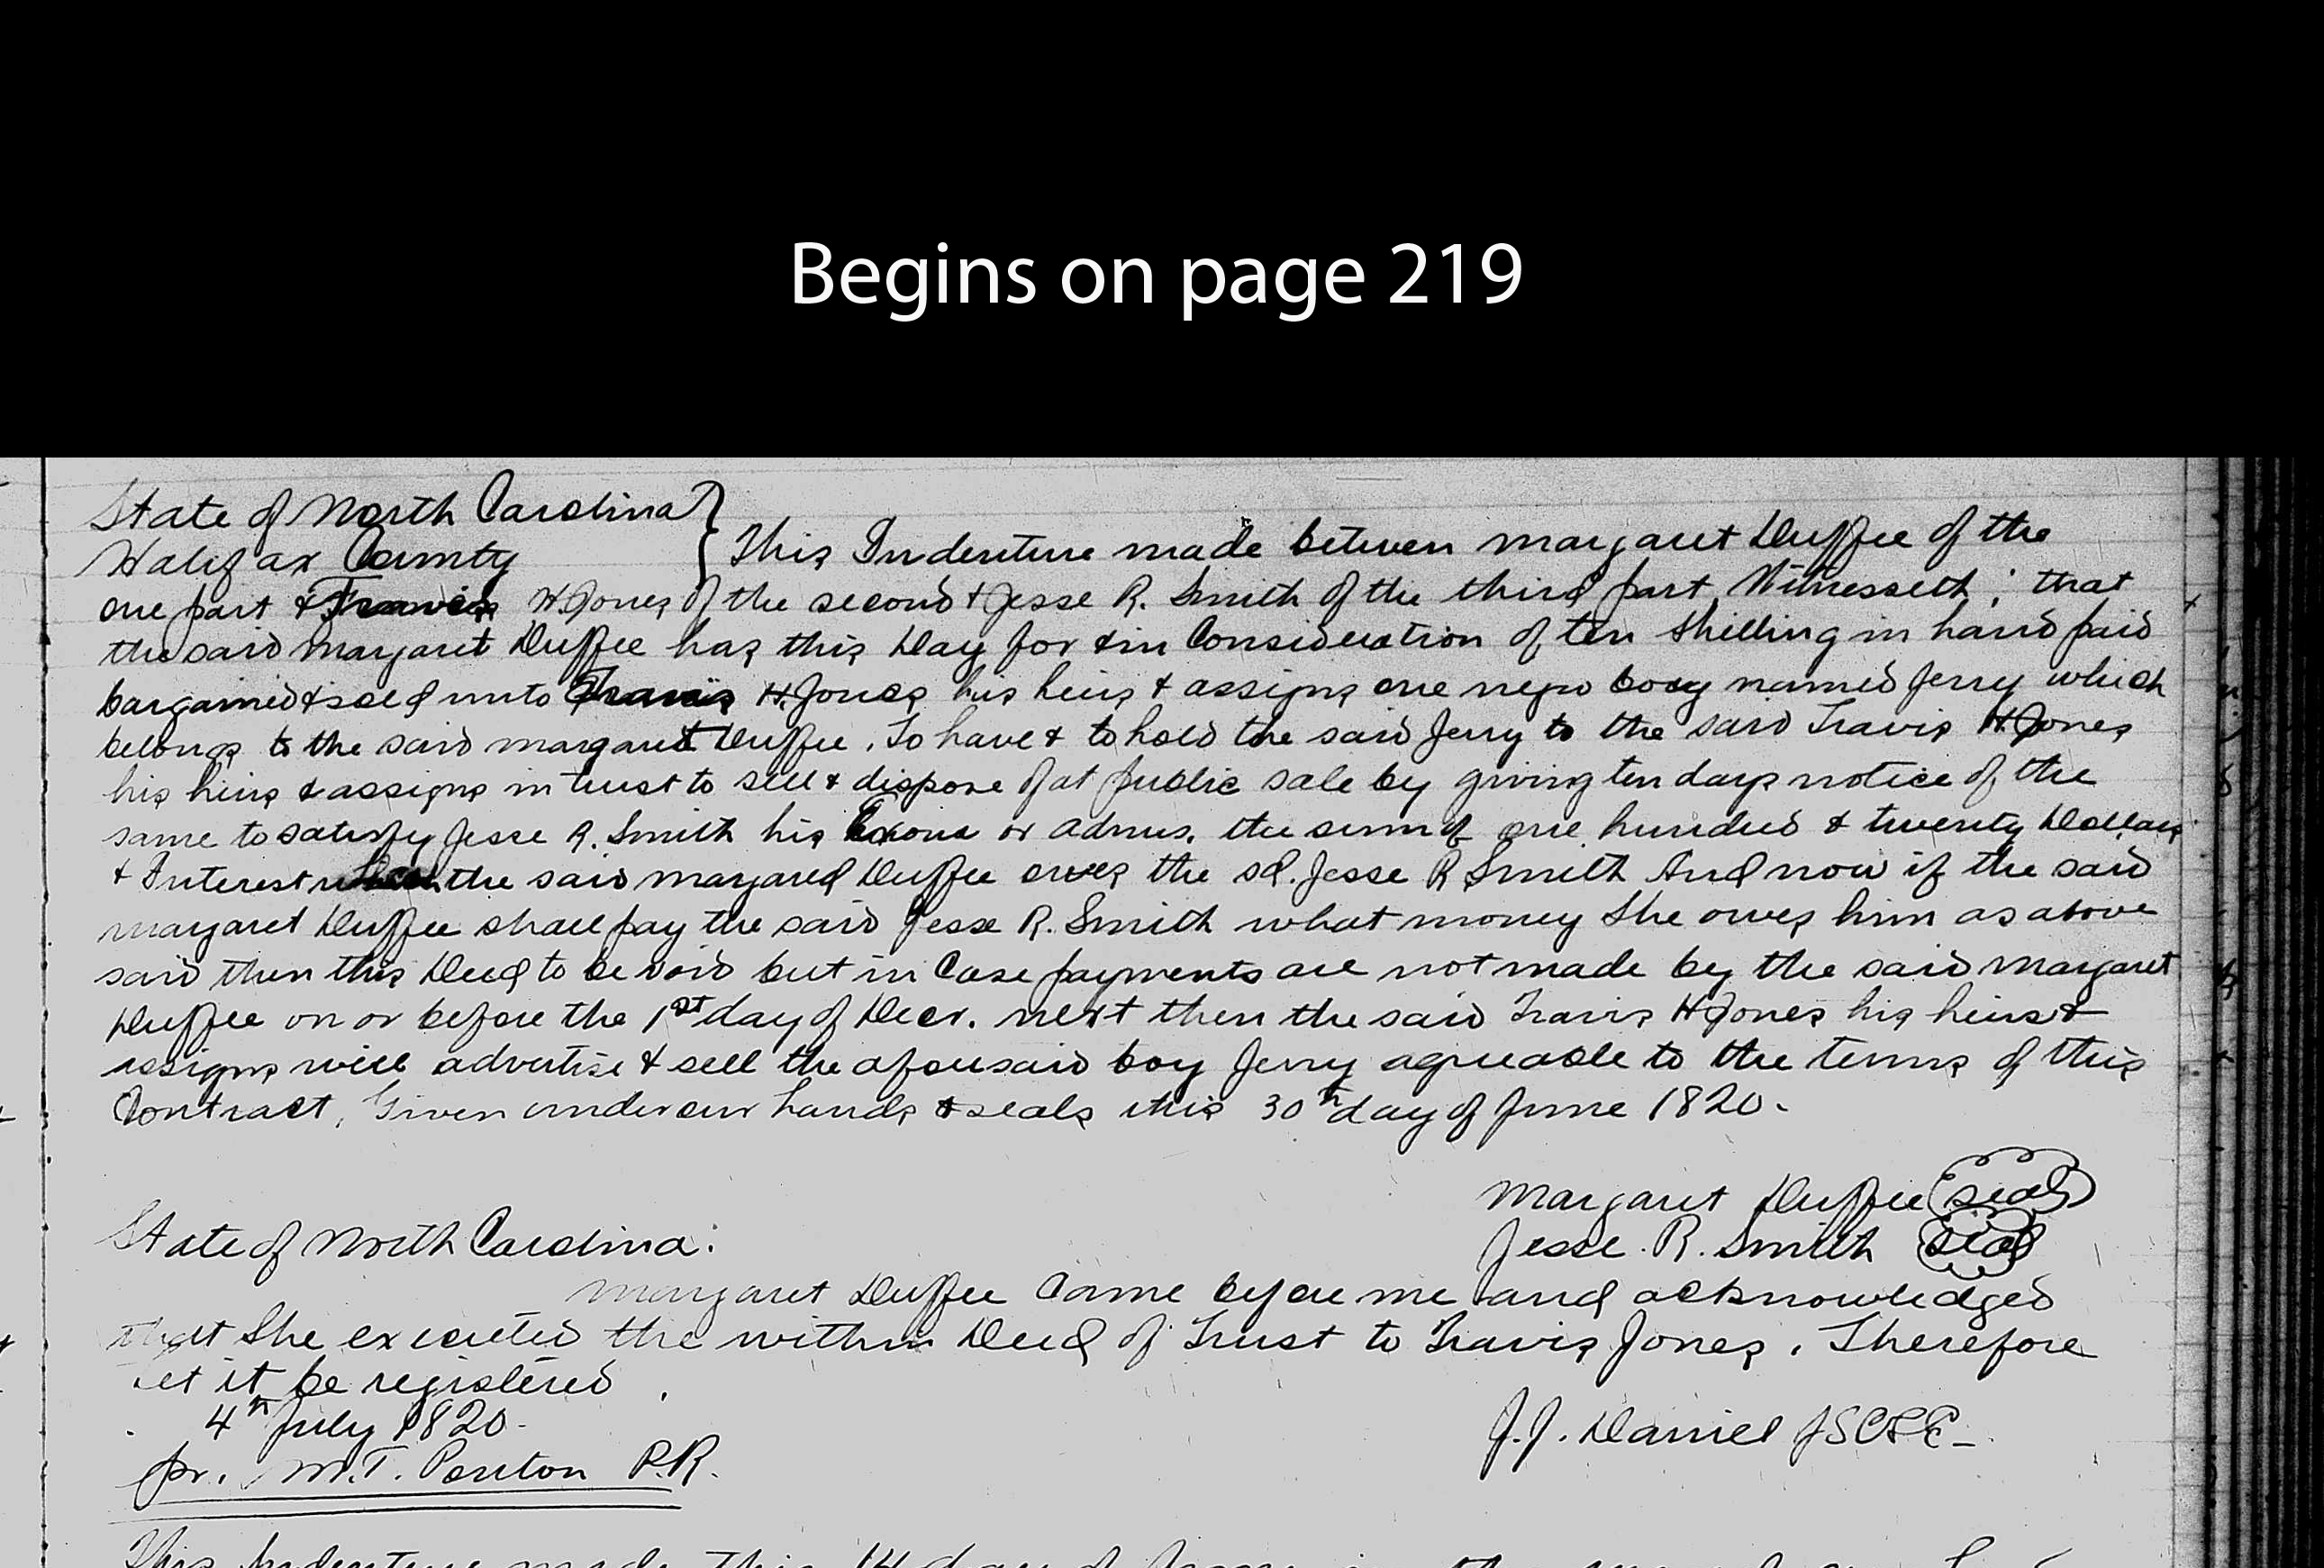 Begins on page 219
State of North Carolina
Halifax County } This Indenture made between Margaret Duffee of the
one part & Travis H. Jones of the second & Jesse R. Smith of the third part, Witnesseth; that
the said Margaret Duffee has this Day for & in Consideration of ten Shilling in hand paid
bargained & sold unto Travis H. Jones his heirs & assigns one negro boy named Jerry which
belongs to the said Margaret Duffee. To have & to hold the said Jerry to the said Travis H. Jones
his heirs & assigns in trust to sell & dispose of at public sale by giving ten days notice of the
same to satisfy Jesse R. Smith his or admrs. the sum of one hundred & twenty Dollars
& Interest which the said Margared Duffee owes the sd. Jesse R Smith And now if the said
Margaret Duffee shall pay the said Jesse R. Smith what money She owes him as above
said then this Deed to be void but in Case payments are not made by the said Margaret
Duffee on or before the 1st day of Decr. next then the said Travis H Jones his heirs &
assigns will advertise & sell the aforesaid boy Jerry agreable to the terms of this
Contract, Given under our hands & seals this 30th day of June 1820.
Margaret Duffee (seal)
Jesse. R. Smith (seal)
State of North Carolina:
Margaret Duffee Came before me and acknowledged
that She executed the within Deed of Trust to Travis Jones. Therefore
let it be registered.
4th July 1820.
J.J. Daniel JSCLE
pr. M.T. Ponton P.R.
This Indenture made this 14 day of